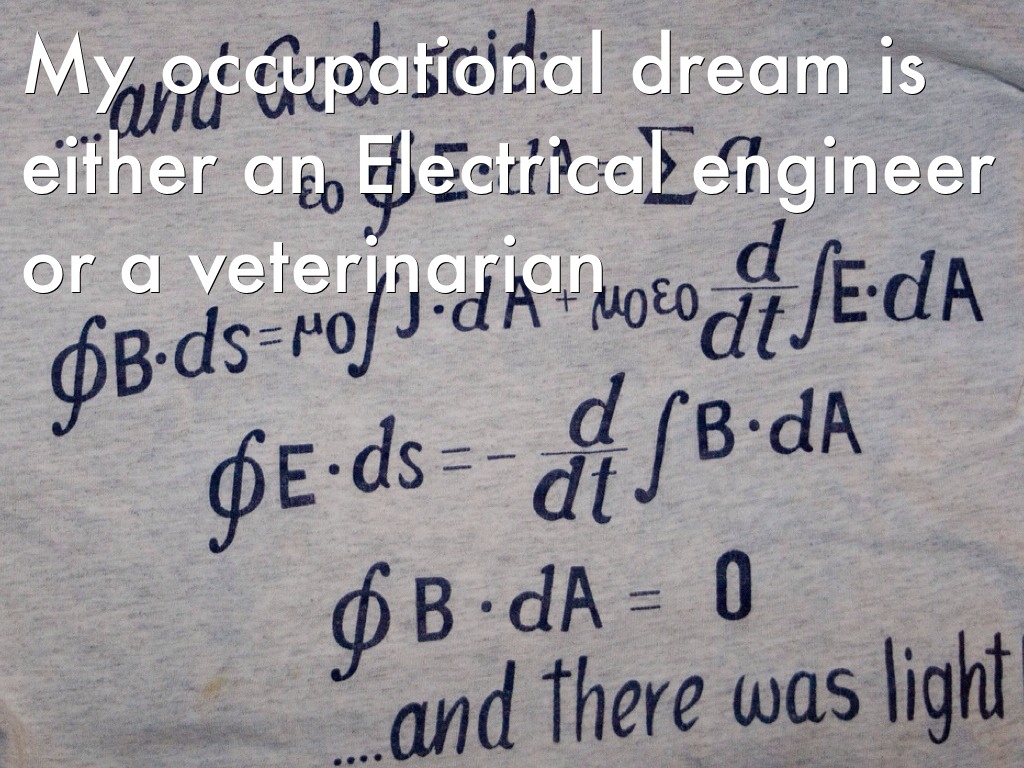 My occupational dream is
either an Electrical engineer
or a veterinarian
...and God said:
ε0 ∮E·dA = Σ q
∮B·ds = μ0∫J·dA + μ0ε0 d/dt ∫E·dA
∮E·ds = - d/dt ∫B·dA
∮B·dA = 0
....and there was light